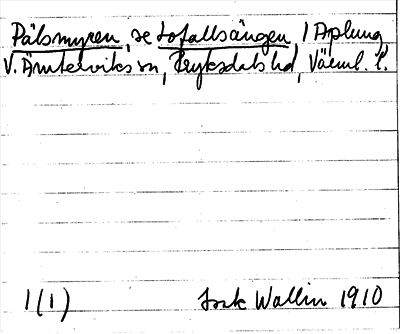 Pålsmyren, se Lofallsängen, i Arplung
V. Ämterviks sn, Fryksdals hd, Värml. l.
1(1) Insk Wallin 1910